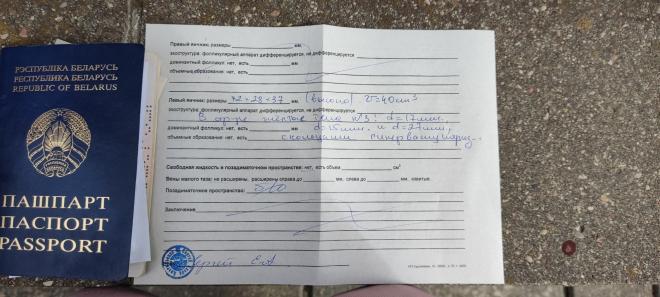 РЭСПУБЛІКА БЕЛАРУСЬ
РЕСПУБЛИКА БЕЛАРУСЬ
REPUBLIC OF BELARUS
ПАШПАРТ
ПАСПОРТ
PASSPORT
Правый яичник: размеры мм
эхоструктура: фолликулярный аппарат дифференцируется, не дифференцируется
доминантный фолликул: нет, есть мм
объемные образования: нет, есть
Левый яичник: размеры 42×28×37 мм (высоко) V=40cm³
эхоструктура: фолликулярный аппарат дифференцируется, не дифференцируется
жёлтые тела №3: d=17мм.
доминантный фолликул: нет, есть мм d=15мм. и d=27мм,
объемные образования: нет, есть с кольцами
Свободная жидкость в позадиматочном пространстве: нет, есть объем см³
Вены малого таза: не расширены, расширены справа до мм, слева до мм, извитые.
Позадиматочное пространство: б/о
Заключение